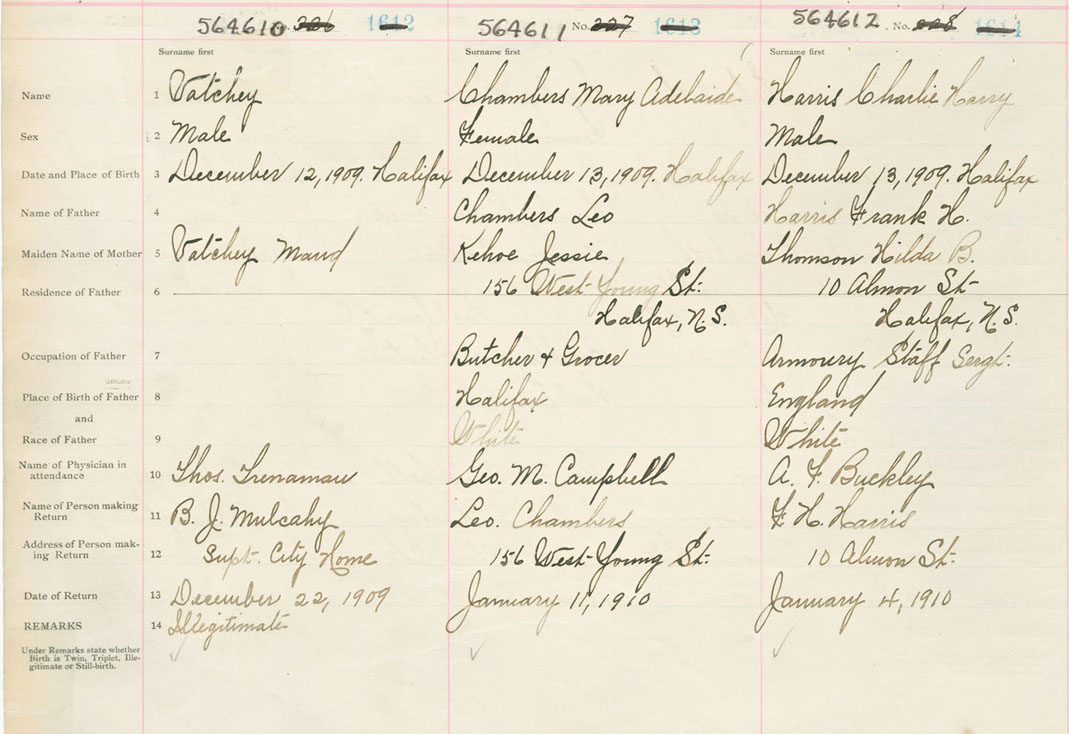 564610 No. 226 1612 564611 No. 227 1613 564612 No. 228 1614
Surname first Surname first Surname first
Name 1 Vatchey Chambers Mary Adelaide Harris Charlie Harry
Sex 2 Male Female Male
Date and Place of Birth 3 December 12, 1909. Halifax December 13, 1909. Halifax December 13, 1909. Halifax
Name of Father 4 Chambers Leo Harris Frank H.
Maiden Name of Mother 5 Vatchey Maud Kehoe Jessie Thomson Hilda B.
Residence of Father 6 156 West Young St. 10 Almon St.
Halifax, N.S. Halifax, N.S.
Occupation of Father 7 Butcher & Grocer Armoury Staff Sergt.
Place of Birth of Father 8 Halifax England
and
Race of Father 9 White White
Name of Physician in
attendance 10 Thos. Trenaman Geo. M. Campbell A. F. Buckley
Name of Person making
Return 11 B. J. Mulcahy Leo. Chambers F. H. Harris
Address of Person mak-
ing Return 12 Supt. City Home 156 West Young St. 10 Almon St.
Date of Return 13 December 22, 1909 January 11, 1910 January 4, 1910
REMARKS 14 Illegitimate
Under Remarks state whether
Birth is Twin, Triplet, Ille-
gitimate or Still-birth.